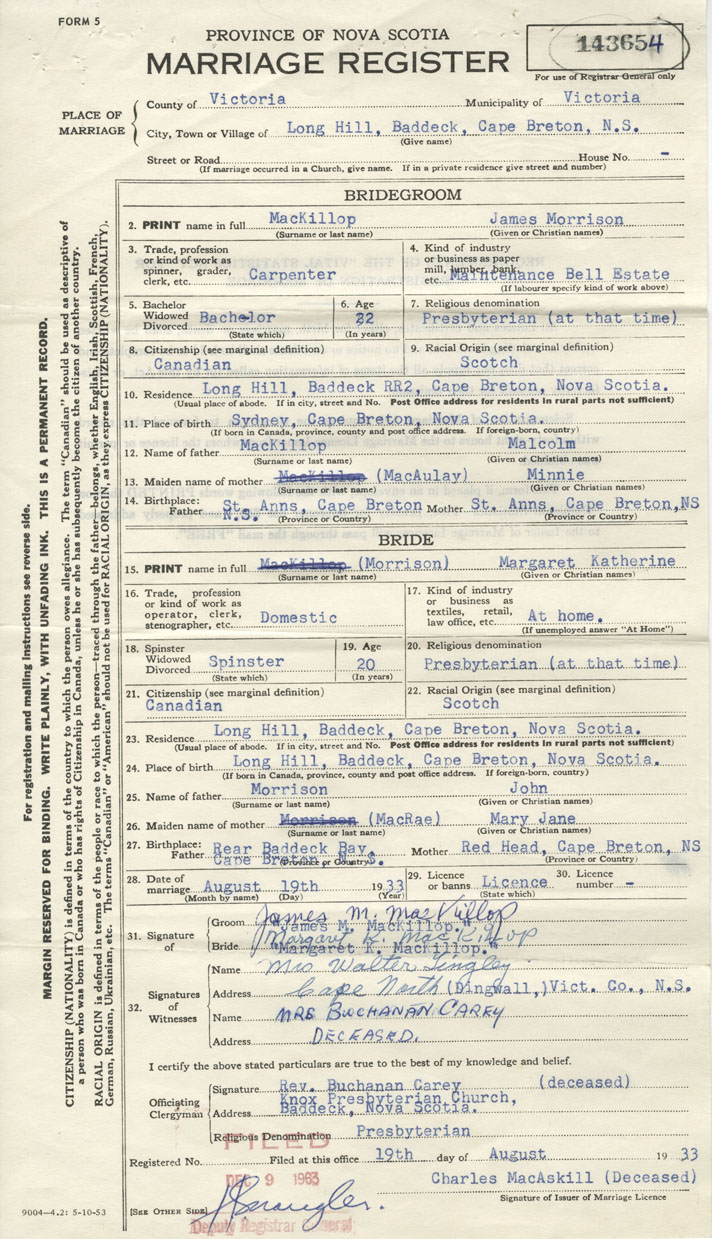 FORM 5
PROVINCE OF NOVA SCOTIA
MARRIAGE REGISTER
143654
For use of Registrar General only
PLACE OF MARRIAGE
County of Victoria Municipality of Victoria
City, Town or Village of Long Hill, Baddeck, Cape Breton, N.S.
(Give name)
Street or Road House No. -
(If marriage occurred in a Church, give name. If in a private residence give street and number)
BRIDEGROOM
2. PRINT name in full MacKillop James Morrison
(Surname or last name) (Given or Christian names)
3. Trade, profession or kind of work as spinner, grader, clerk, etc. Carpenter
4. Kind of industry or business as paper mill, lumber, bank, etc. Maintenance Bell Estate
(If labourer specify kind of work above)
5. Bachelor Widowed Divorced Bachelor
(State which)
6. Age 22
(In years)
7. Religious denomination
Presbyterian (at that time)
8. Citizenship (see marginal definition)
Canadian
9. Racial Origin (see marginal definition)
Scotch
10. Residence Long Hill, Baddeck RR2, Cape Breton, Nova Scotia.
(Usual place of abode. If in city, street and No. Post Office address for residents in rural parts not sufficient)
11. Place of birth Sydney, Cape Breton, Nova Scotia.
(If born in Canada, province, county and post office address. If foreign-born, country)
12. Name of father MacKillop Malcolm
(Surname or last name) (Given or Christian names)
13. Maiden name of mother MacKillop (MacAulay) Minnie
(Surname or last name) (Given or Christian names)
14. Birthplace: Father St. Anns, Cape Breton N.S. Mother St. Anns, Cape Breton, NS
(Province or Country) (Province or Country)
BRIDE
15. PRINT name in full MacKillop (Morrison) Margaret Katherine
(Surname or last name) (Given or Christian names)
16. Trade, profession or kind of work as operator, clerk, stenographer, etc. Domestic
17. Kind of industry or business as textiles, retail, law office, etc. At home.
(If unemployed answer "At Home")
18. Spinster Widowed Divorced Spinster
(State which)
19. Age 20
(In years)
20. Religious denomination
Presbyterian (at that time)
21. Citizenship (see marginal definition)
Canadian
22. Racial Origin (see marginal definition)
Scotch
23. Residence Long Hill, Baddeck, Cape Breton, Nova Scotia.
(Usual place of abode. If in city, street and No. Post Office address for residents in rural parts not sufficient)
24. Place of birth Long Hill, Baddeck, Cape Breton, Nova Scotia.
(If born in Canada, province, county and post office address. If foreign-born, country)
25. Name of father Morrison John
(Surname or last name) (Given or Christian names)
26. Maiden name of mother Morrison (MacRae) Mary Jane
(Surname or last name) (Given or Christian names)
27. Birthplace: Father Rear Baddeck Bay, Cape Breton N.S. Mother Red Head, Cape Breton, NS
(Province or Country) (Province or Country)
28. Date of marriage August 19th 1933
(Month by name) (Day) (Year)
29. Licence or banns Licence
(State which)
30. Licence number -
31. Signature of
Groom James M. MacKillop
"James M. MacKillop."
Bride Margaret K. MacKillop
"Margaret K. MacKillop"
32. Signatures of Witnesses
Name Mrs Walter Tingley
Address Cape North (Dingwall,) Vict. Co., N.S.
Name MRS BUCHANAN CAREY
Address DECEASED.
I certify the above stated particulars are true to the best of my knowledge and belief.
Officiating Clergyman
Signature Rev. Buchanan Carey (deceased)
Address Knox Presbyterian Church, Baddeck, Nova Scotia.
Religious Denomination Presbyterian
FILED
Registered No. Filed at this office 19th day of August 1933
DEC 9 1963
Charles MacAskill (Deceased)
Signature of Issuer of Marriage Licence
9004—4.2: 5-10-53
[SEE OTHER SIDE]
Deputy Registrar General
For registration and mailing instructions see reverse side.
MARGIN RESERVED FOR BINDING. WRITE PLAINLY, WITH UNFADING INK. THIS IS A PERMANENT RECORD.
CITIZENSHIP (NATIONALITY) is defined in terms of the country to which the person owes allegiance. The term "Canadian" should be used as descriptive of
a person who was born in Canada or who has rights of Citizenship in Canada, unless he or she has subsequently become the citizen of another country.
RACIAL ORIGIN is defined in terms of the people or race to which the person—traced through the father—belongs, whether English, Irish, Scottish, French,
German, Russian, Ukrainian, etc. The terms "Canadian" or "American" should not be used for RACIAL ORIGIN, as they express CITIZENSHIP (NATIONALITY).